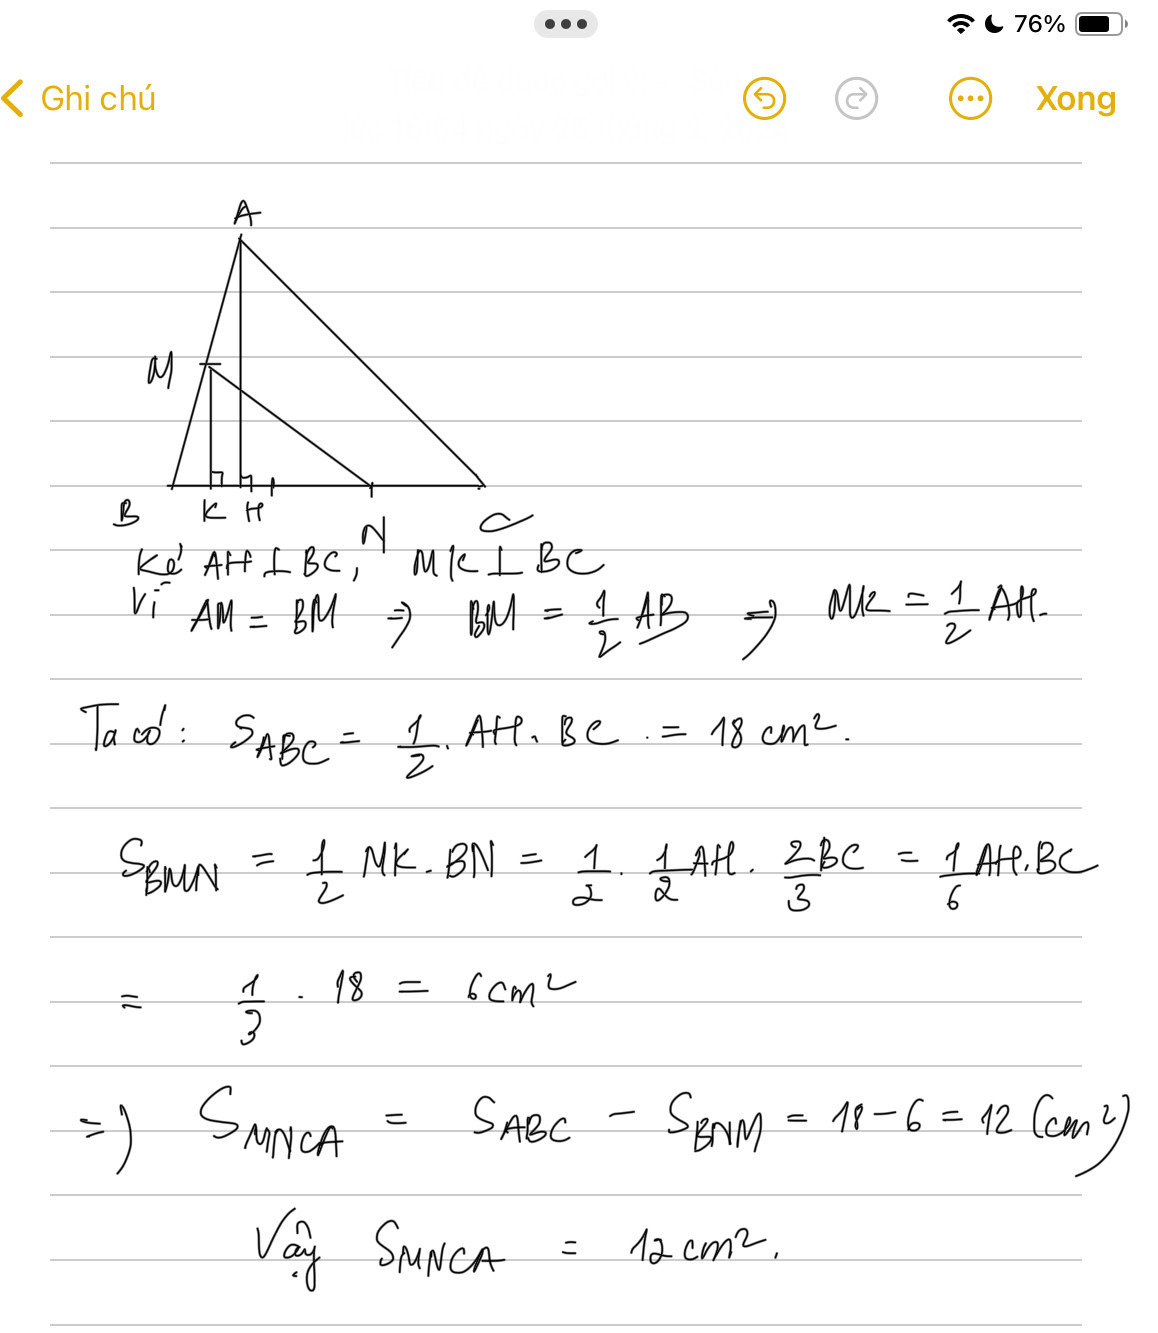 76%
Ghi chú
Xong
A
M
B K H N C
Kẻ AH ⊥ BC, MK ⊥ BC
Vì AM = BM => BM = 1/2 AB => MK = 1/2 AH.
Ta có: S_ABC = 1/2 . AH . BC . = 18 cm².
S_BMN = 1/2 MK . BN = 1/2 . 1/2 AH . 2/3 BC = 1/6 AH . BC
= 1/3 . 18 = 6cm²
=> S_MNCA = S_ABC - S_BNM = 18 - 6 = 12 (cm²)
Vậy S_MNCA = 12 cm².